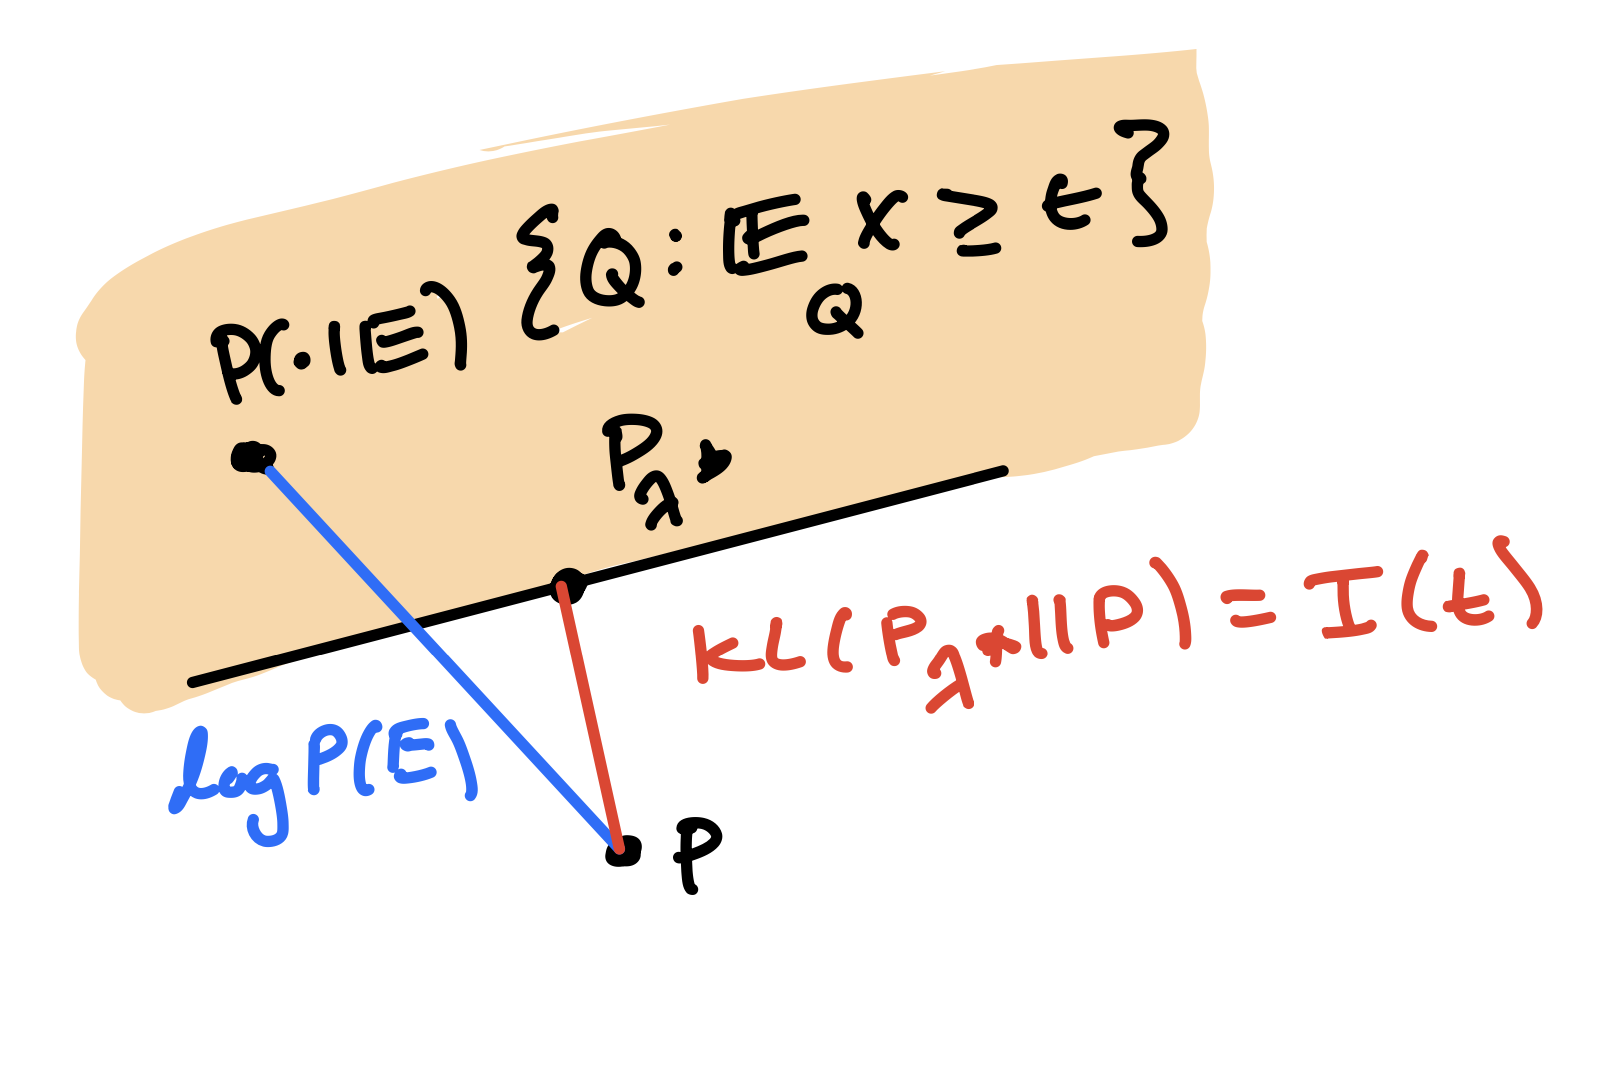 {Q: 𝔼_Q X ≥ t}
P(·|E)
P_λ*
KL(P_λ*||P) = I(t)
log P(E)
P